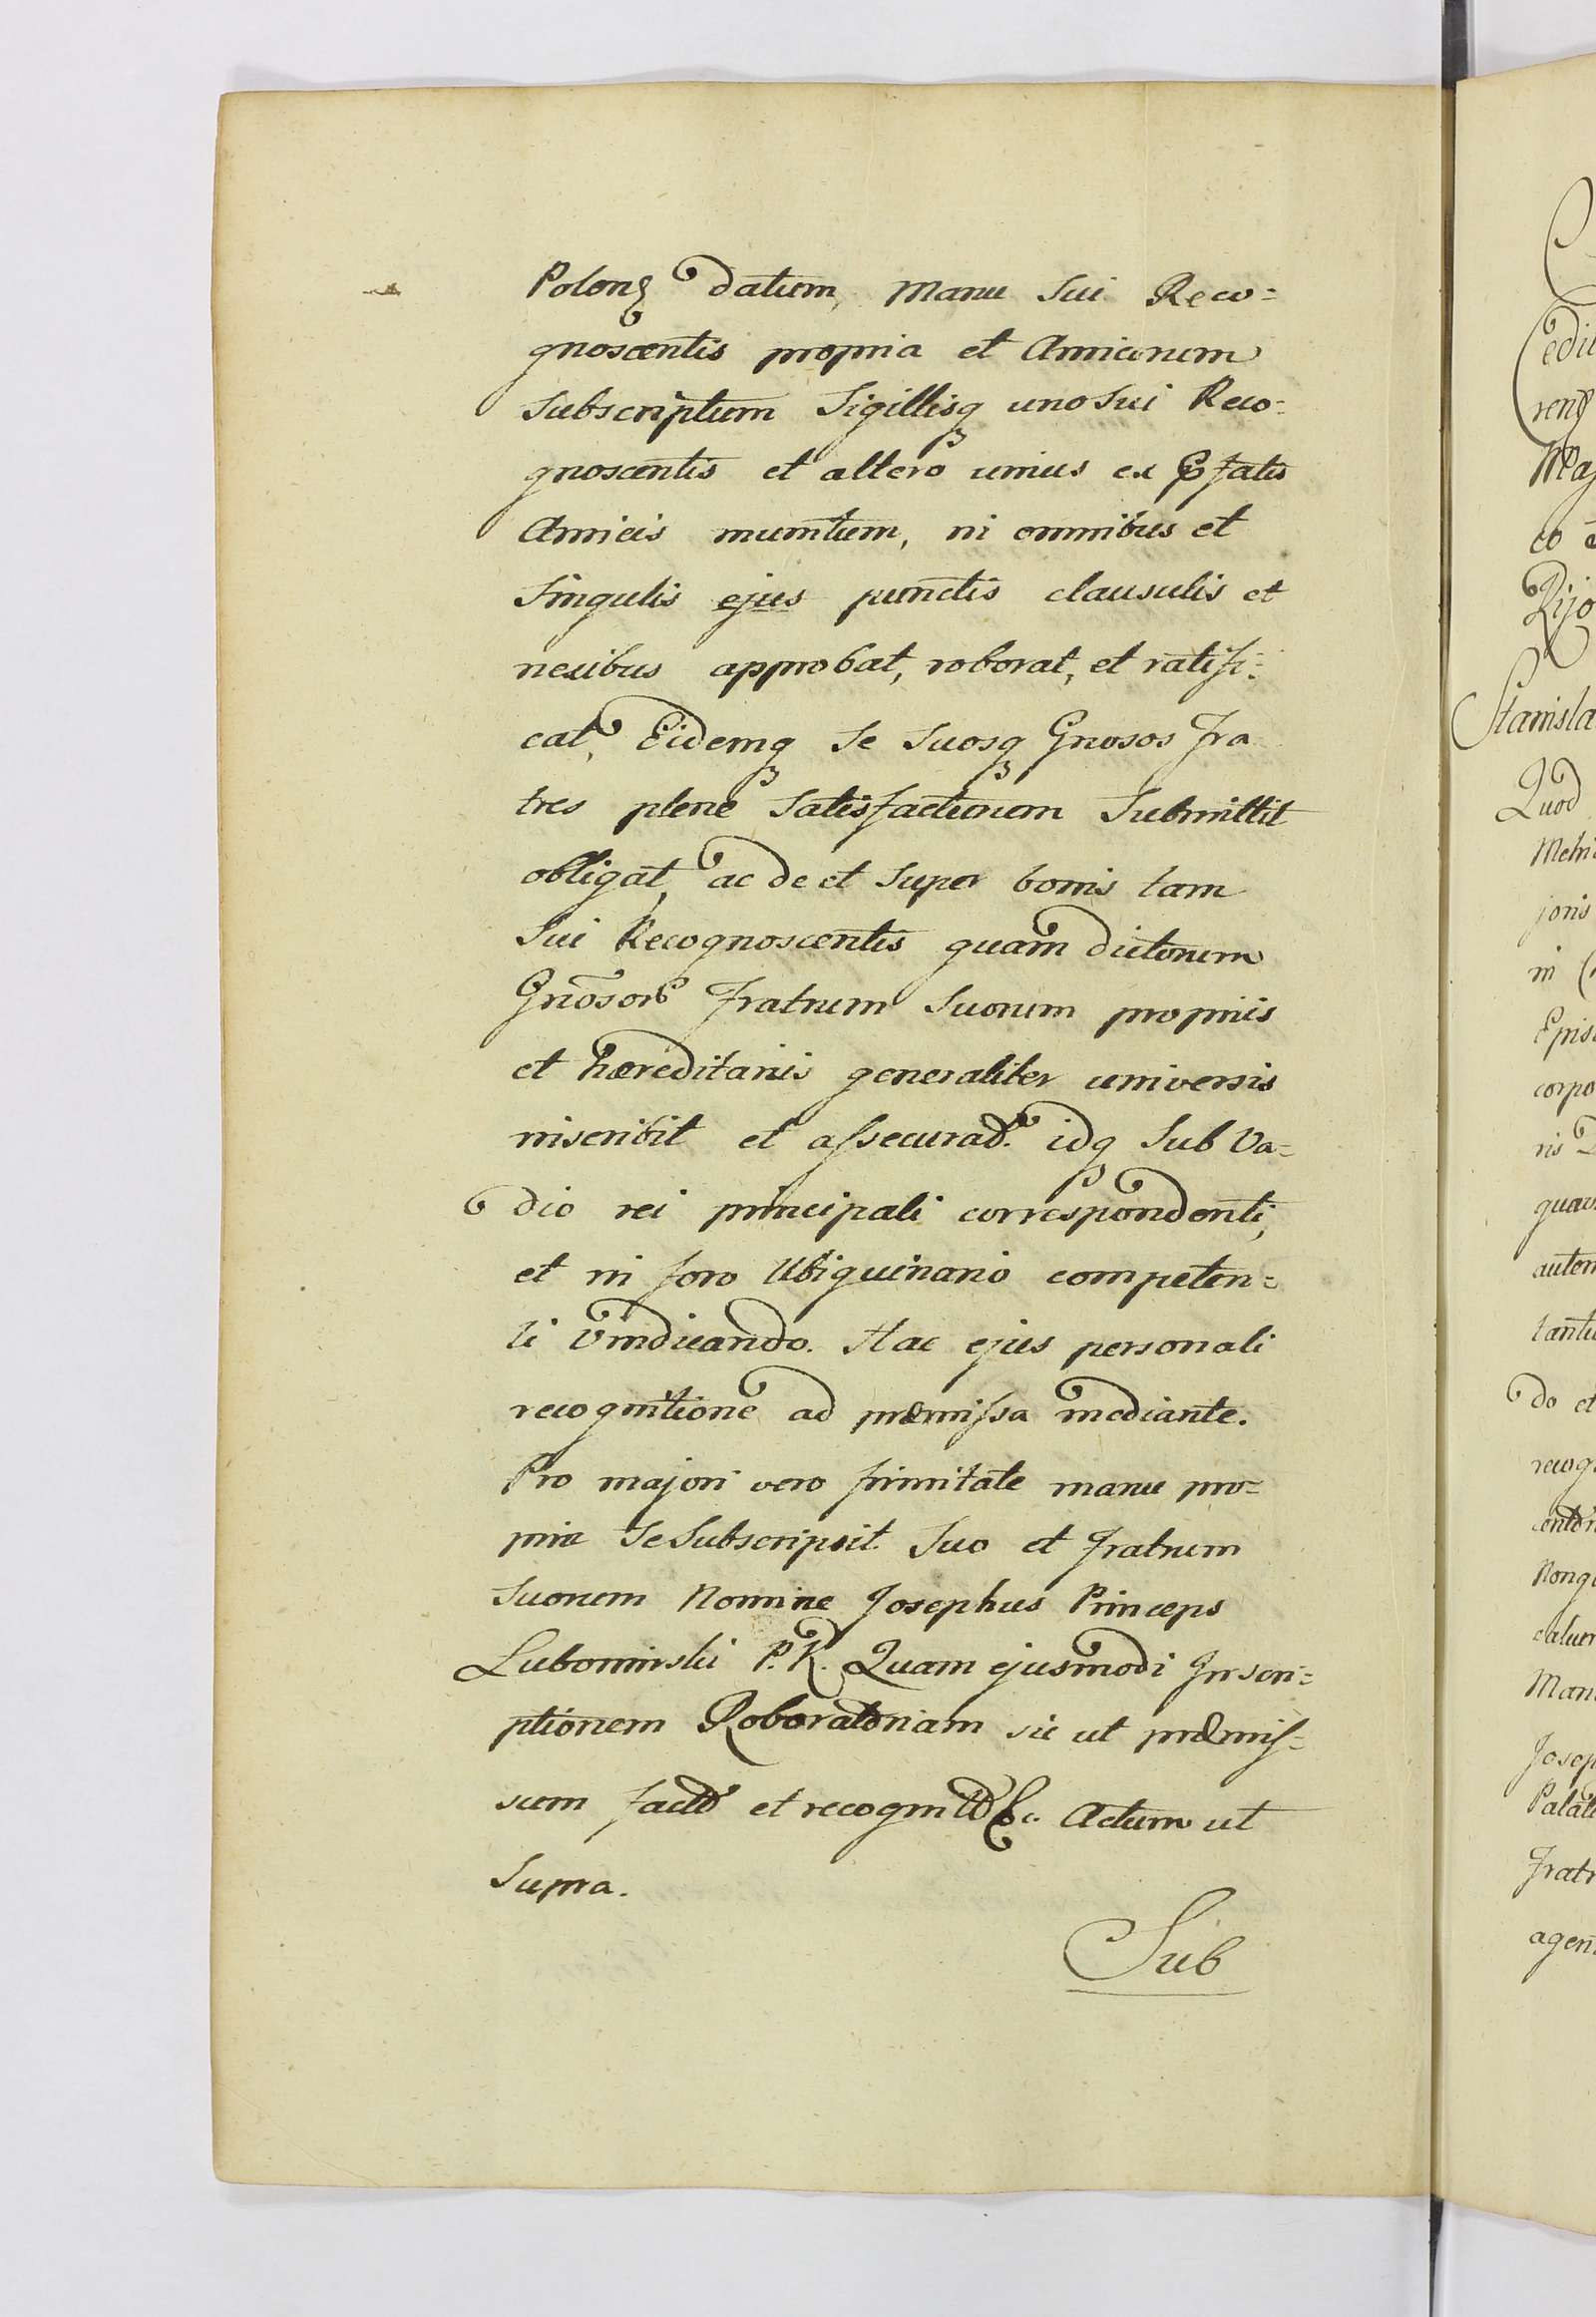 Polonę datum, manu sui Reco=
gnoscentis propria et Amicorum
subscriptum Sigillisq uno sui Reco=
gnoscentis et altero unius ex Pfatis
Amicis munitum, in omnibus et
singulis ejus punctis clausulis et
nexibus approbat, roborat, et ratifi=
cat, Eidemq se suosq Gnosos Fra
tres plene satisfacturum submittit
obligat, ac de et super bonis tam
sui Recognoscentis quam dictorum
Gnosor Fratrum suorum propriis
et hæreditariis generaliter universis
inscribit et assecurat. idq sub Va=
dio rei principali correspondenti,
et in foro Ubiquinario competen=
ti vindicando. Hac ejus personali
recognitione ad præmissa mediante.
Pro majori vero firmitate manu pro=
pria se subscripsit suo et Fratrum
suorum Nomine Josephus Princeps
Lubomirski P. K. Quam ejusmodi Inscri=
ptionem Roboratoriam sic ut præmis=
sum factā et recognitā &c. Actum ut
supra.
Sub
edit
reng
Maj
co
Rijo
Stanisla
Quod
Metri
joris
in
Epis
corpo
ris
quaru
autem
tantu
do et
recog
Manu
Josep
Palati
Fratr
agen